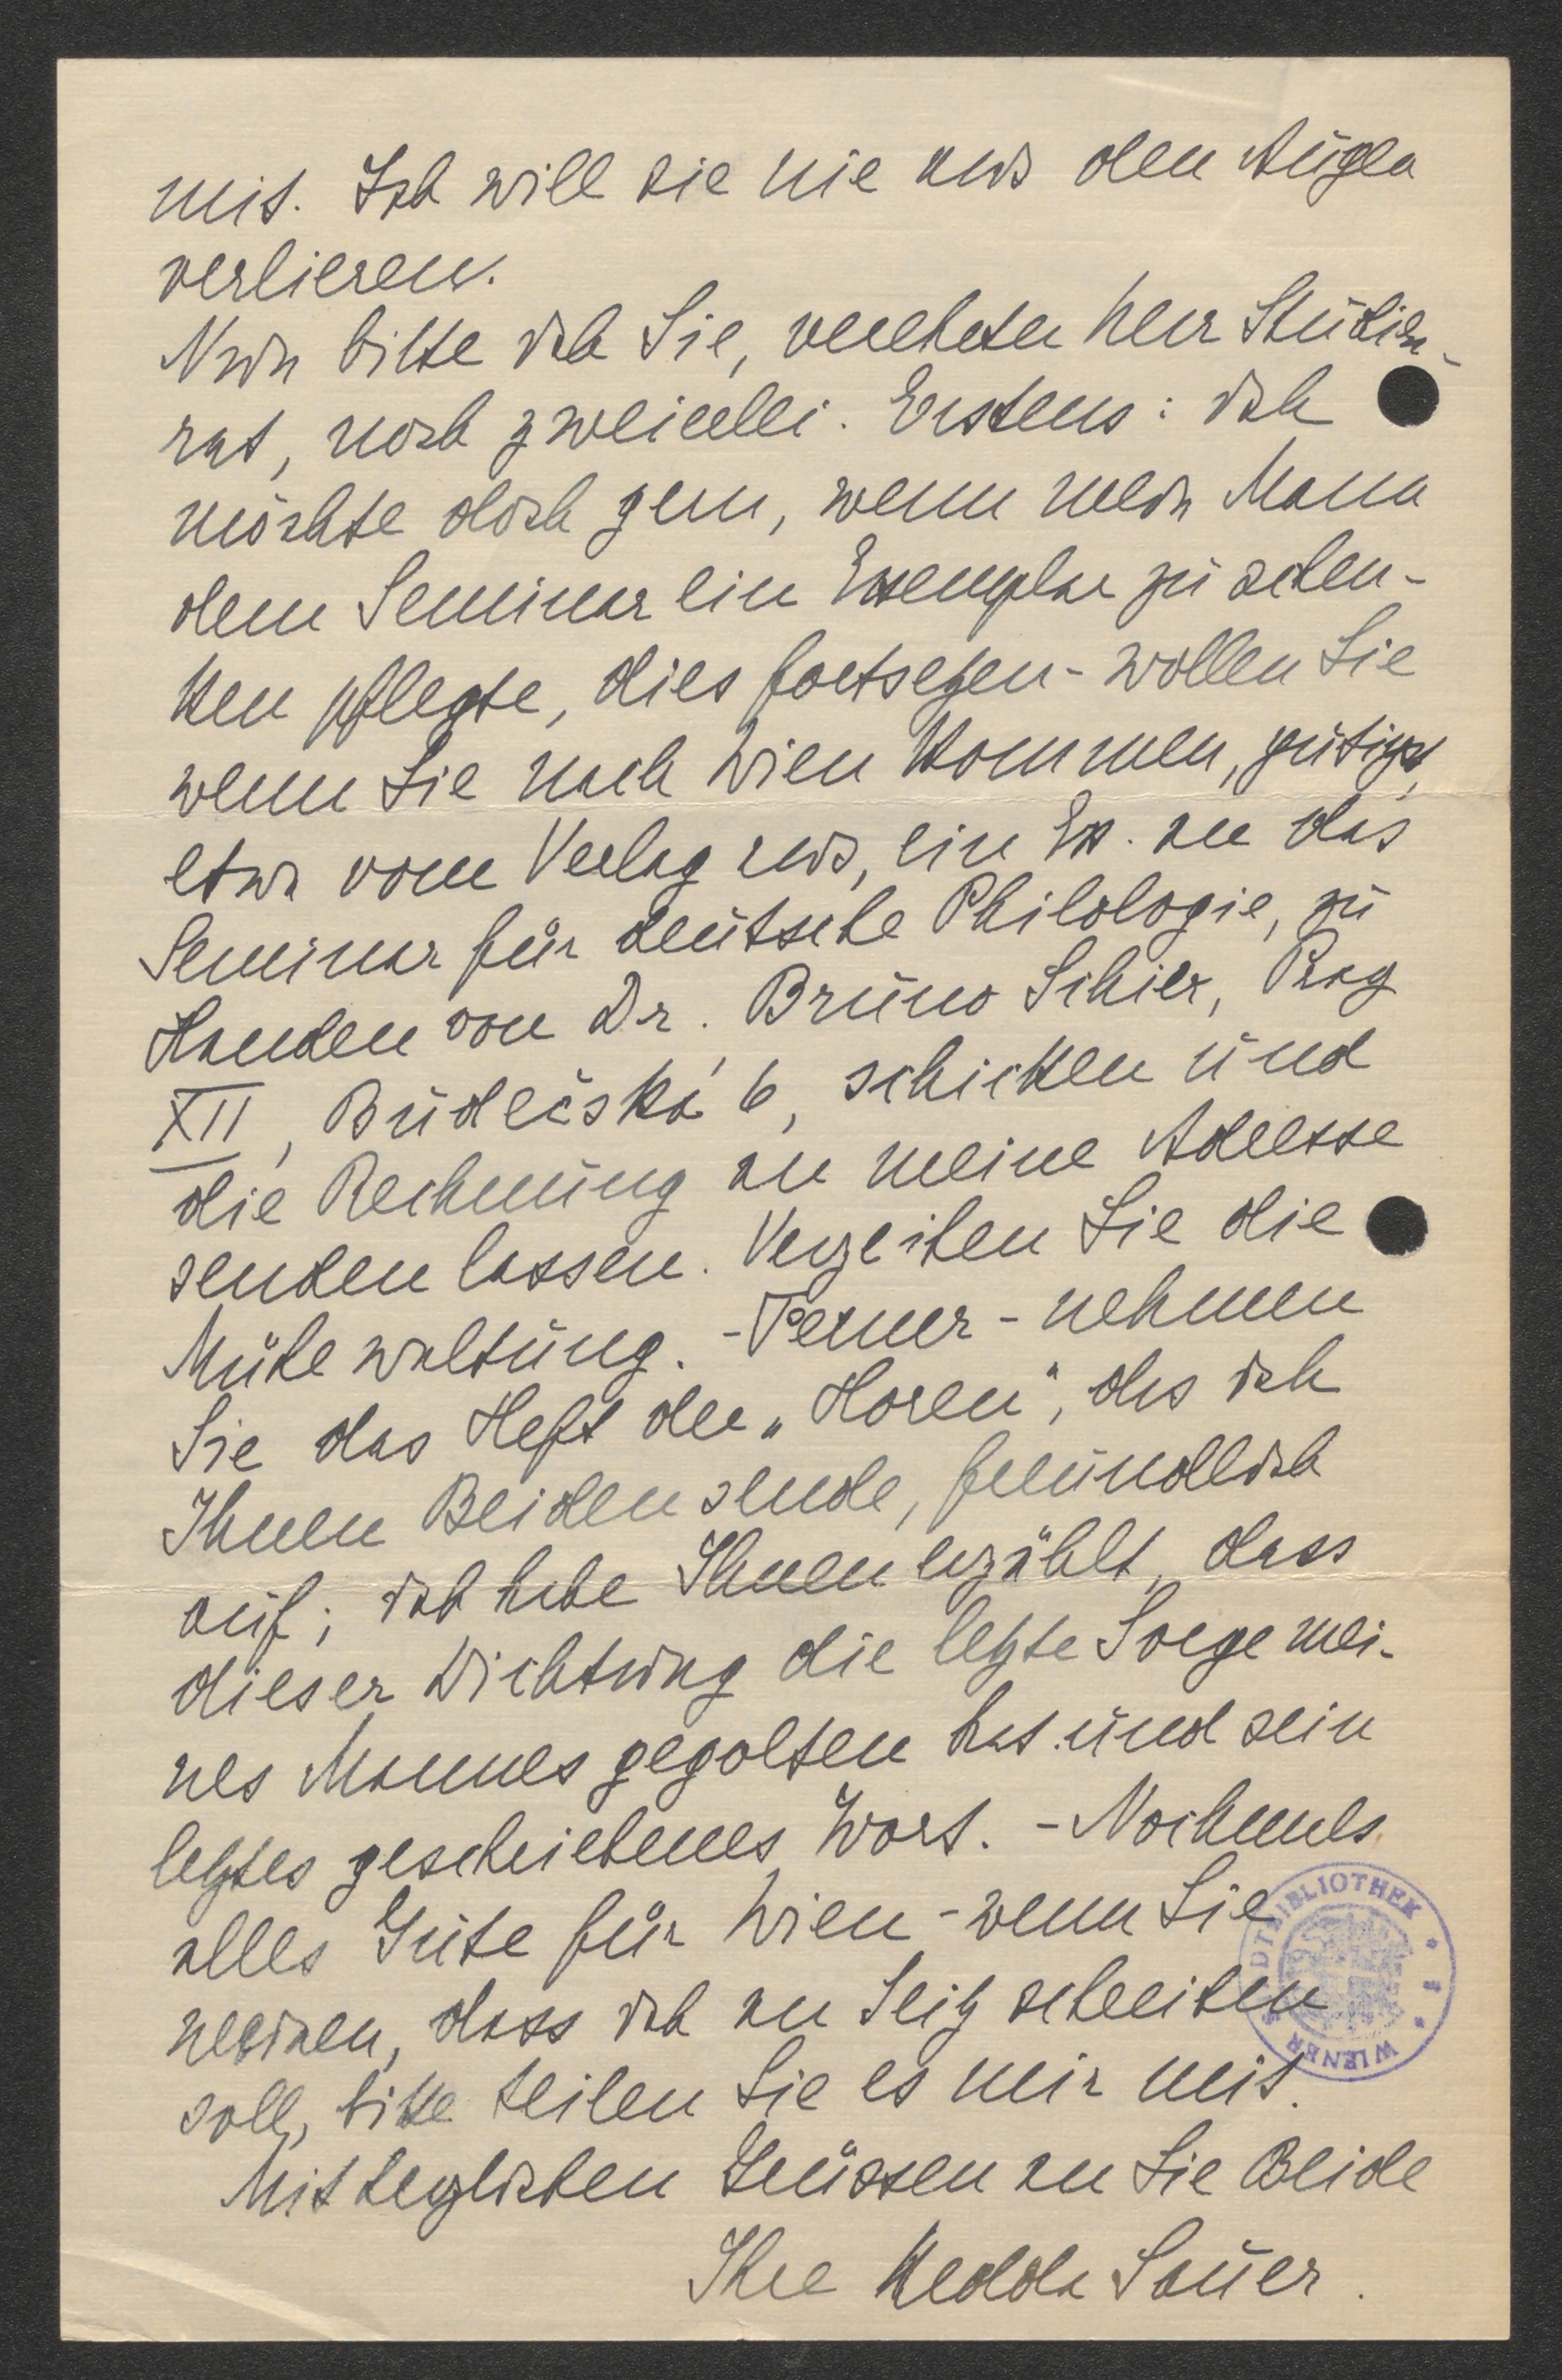 mit. Ich will sie nie aus den Augen
verlieren.
Nun bitte ich Sie, verehrter Herr Studien-
rat, noch zweierlei. Erstens: ich
möchte doch gern, wenn mein Mann
dem Seminar ein Exemplar zu schen-
ken pflegte, dies fortsetzen - wollen Sie
wenn Sie nach Wien kommen, gütigst,
etwa vom Verlag aus, ein Ex. an das
Seminar für deutsche Philologie, zu
Handen von Dr. Bruno Schier, Prag
XII, Budečská 6, schicken und
die Rechnung an meine Adresse
senden lassen. Verzeihen Sie die
Mühewaltung. - Ferner - nehmen
Sie das Heft der „Horen", das ich
Ihnen Beiden sende, freundlich
auf; ich habe Ihnen erzählt, dass
dieser Dichtung die letzte Sorge mei-
nes Mannes gegolten hat und sein
letztes geschriebenes Wort. - Nochmals
alles Gute für Wien - wenn Sie
meinen, dass ich an Seitz schreiben
soll, bitte teilen Sie es mir mit.
Mit herzlichen Grüssen an Sie Beide
Ihre Hedda Sauer.
WIENER STADTBIBLIOTHEK